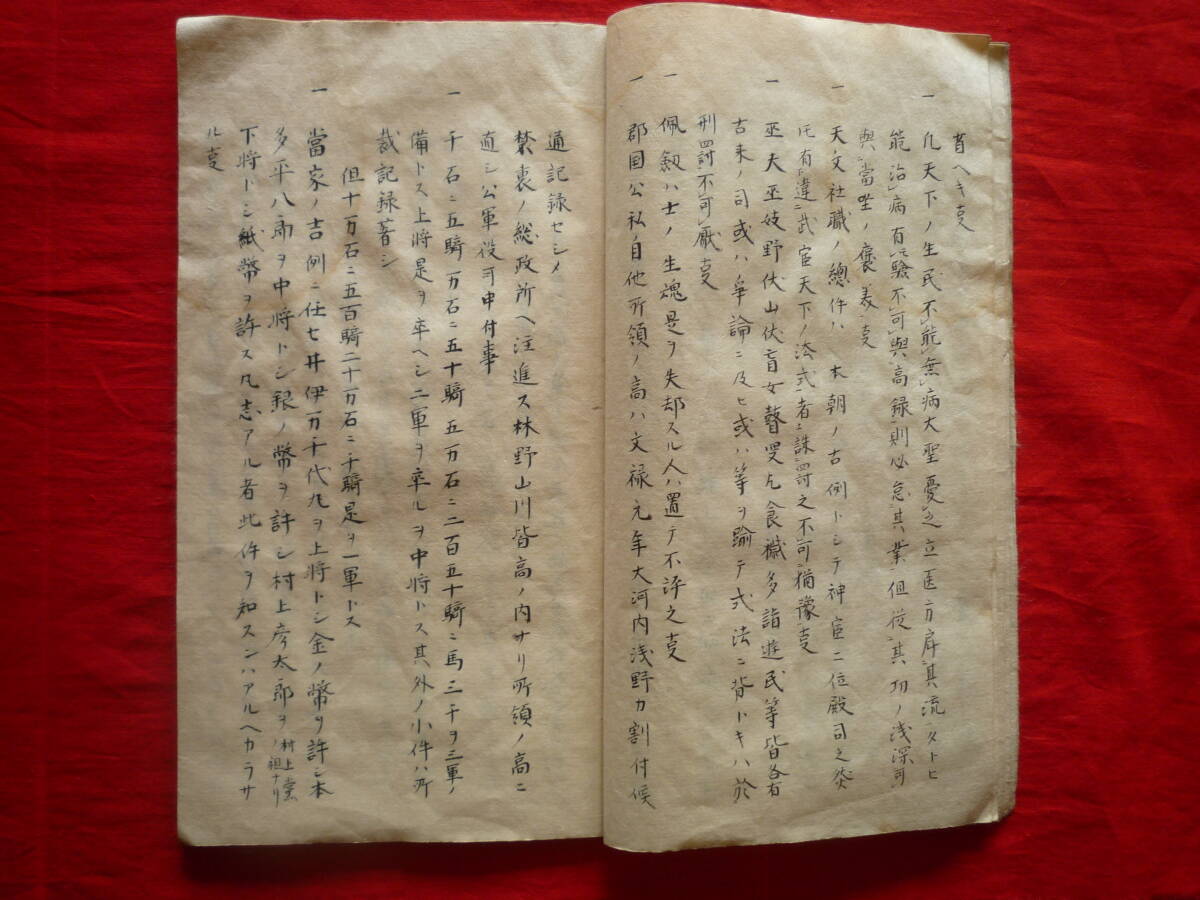 首ヘキ叓
一 凡天下ノ生民不能無病大聖憂之立医方床其流タトヒ
能治病有效驗不可與高録則必怠其業但従其功ノ浅深可
與當坐ノ褒美叓
一 天文社職ノ總件ハ本朝ノ古例トシテ神宣二位殿司之然
𪜈有違武官天下ノ法式者誅討之不可猶豫叓
一 巫夫巫妓野伏山伏盲女瞽叟乞食穢多諸遊民等皆各有
古来ノ司或ハ爭論ニ及ヒ或ハ等ヲ踰テ式法ニ背トキハ於
刑罸不可厭叓
一 佩釼ハ士ノ生魂是ヲ失却スル人ハ置テ不許之叓
一 郡国公私自他所領ノ高ハ文禄元年大河内浅野カ割付候
通記録セシメ
禁裏ノ総政所ヘ注進ス林野山川皆高ノ内ナリ所領ノ高ニ
適シ公軍役可申付事
一 千石ニ五騎万石ニ五十騎五万石ニ二百五十騎ニ馬三千ヲ三軍ノ
備トス上将是ヲ卒ヘシ二軍ヲ卒ルヲ中将トス其外ノ小件ハ所
裁記録著シ
但十万石ニ五百騎二十万石ニ千騎是ヲ一軍トス
一 當家ノ吉例ニ任セ井伊万千代丸ヲ上将トシ金ノ幣ヲ許シ本
多平八郎ヲ中将トシ銀ノ幣ヲ許シ村上彦太郎ヲ村上党ノ祖ナリ
下将トシ紙幣ヲ許ス凡志アル者此件ヲ知スンハアルヘカラサ
ル叓